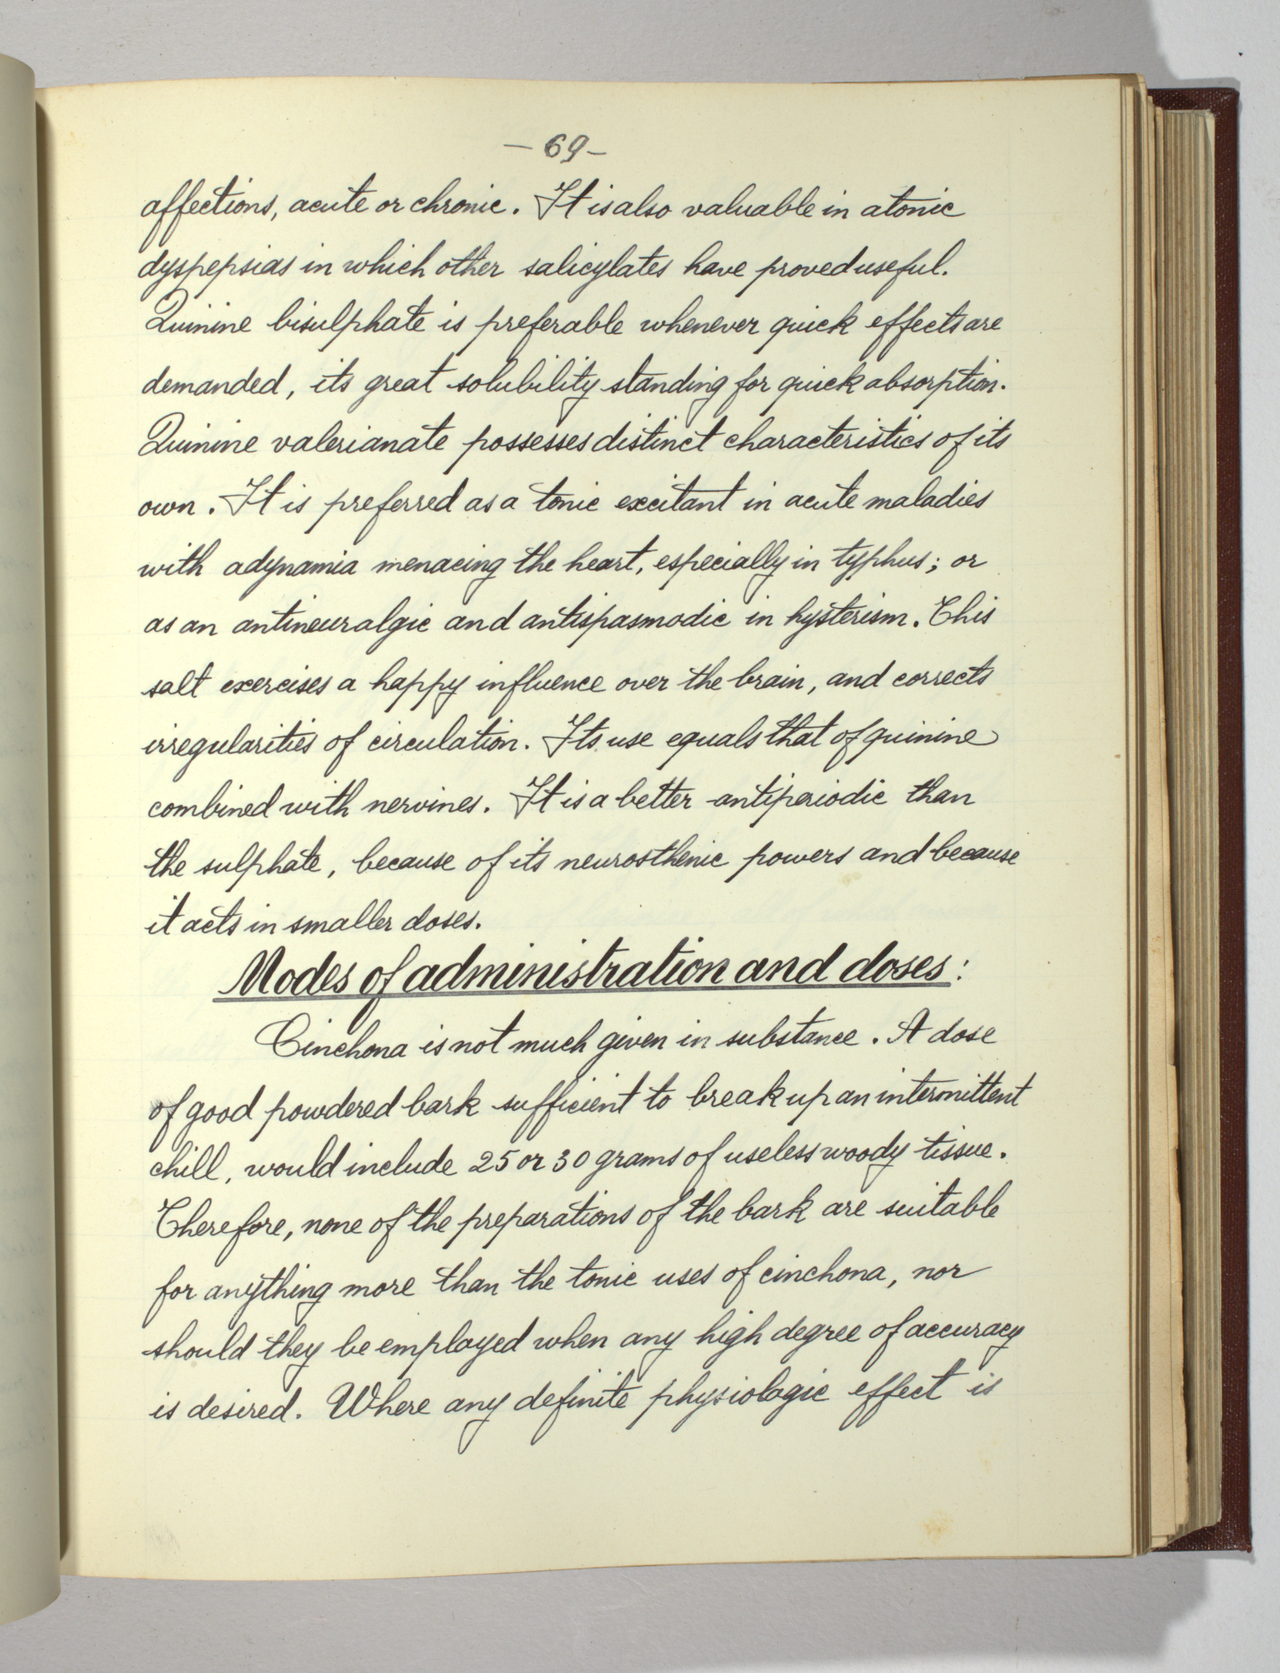 — 69 —
affections, acute or chronic. It is also valuable in atonic
dyspepsias in which other salicylates have proved useful.
Quinine bisulphate is preferable whenever quick effects are
demanded, its great solubility standing for quick absorption.
Quinine valerianate possesses distinct characteristics of its
own. It is preferred as a tonic excitant in acute maladies
with adynamia menacing the heart, especially in typhus; or
as an antineuralgic and antispasmodic in hysterism. This
salt exercises a happy influence over the brain, and corrects
irregularities of circulation. Its use equals that of quinine
combined with nervines. It is a better antiperiodic than
the sulphate, because of its neurosthenic powers and because
it acts in smaller doses.
Modes of administration and doses:
Cinchona is not much given in substance. A dose
of good powdered bark sufficient to break up an intermittent
chill, would include 25 or 30 grams of useless woody tissue.
Therefore, none of the preparations of the bark are suitable
for anything more than the tonic uses of cinchona, nor
should they be employed when any high degree of accuracy
is desired. Where any definite physiologic effect is